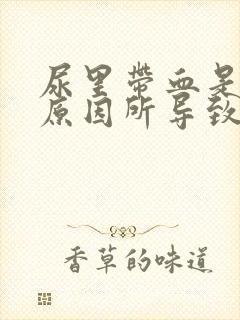 尿里带血是
原因所导致
香草的味道